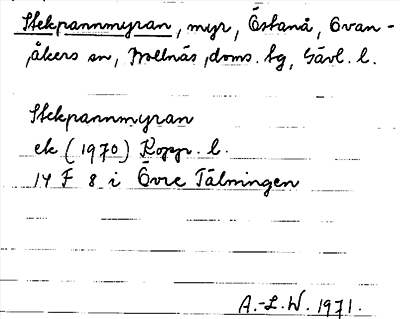 Stekpannmyran, myr, Östanå, Ovan-
åkers sn, Bollnäs doms. tg, Gävl. l.
Stekpannmyran
ek (1970) Kopp. l.
14 F 8 i Övre Tälningen
A.-L.W. 1971.